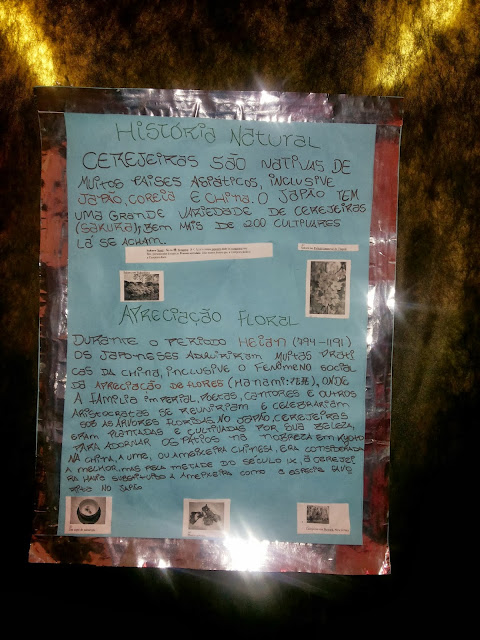 História Natural
CEREJEIRAS SÃO NATIVAS DE
MUITOS PAISES ASIÁTICOS, INCLUSIVE
JAPÃO, COREIA E CHINA. O JAPÃO TEM
UMA GRANDE VARIEDADE DE CEREJEIRAS
(SAKURA); BEM MAIS DE 200 CULTIVARES
LÁ SE ACHAM.
APRECIAÇÃO FLORAL
DURANTE O PERÍODO HEIAN (794-1191)
OS JAPONESES ADQUIRIRAM MUITAS PRÁTI
CAS DA CHINA, INCLUSIVE O FENÔMENO SOCIAL
DA APRECIAÇÃO DE FLORES (HANAMI: 花見), ONDE
A FAMÍLIA IMPERIAL, POETAS, CANTORES E OUTROS
ARISTOCRATAS SE REUNIRIAM E CELEBRARIAM
SOB AS ÁRVORES FLORIDAS. NO JAPÃO, CEREJEIRAS
ERAM PLANTADAS E CULTIVADAS POR SUA BELEZA,
PARA ADORNAR OS PÁTIOS NA NOBREZA EM KYOTO
NA CHINA, A UME, OU AMEIXEIRA CHINESA, ERA CONSIDERADA
A MELHOR, MAS PELA METADE DO SÉCULO IX, A CEREJEI
RA HAVIA SUBSTITUÍDO A AMEIXEIRA COMO A ESPÉCIE
NO JAPÃO